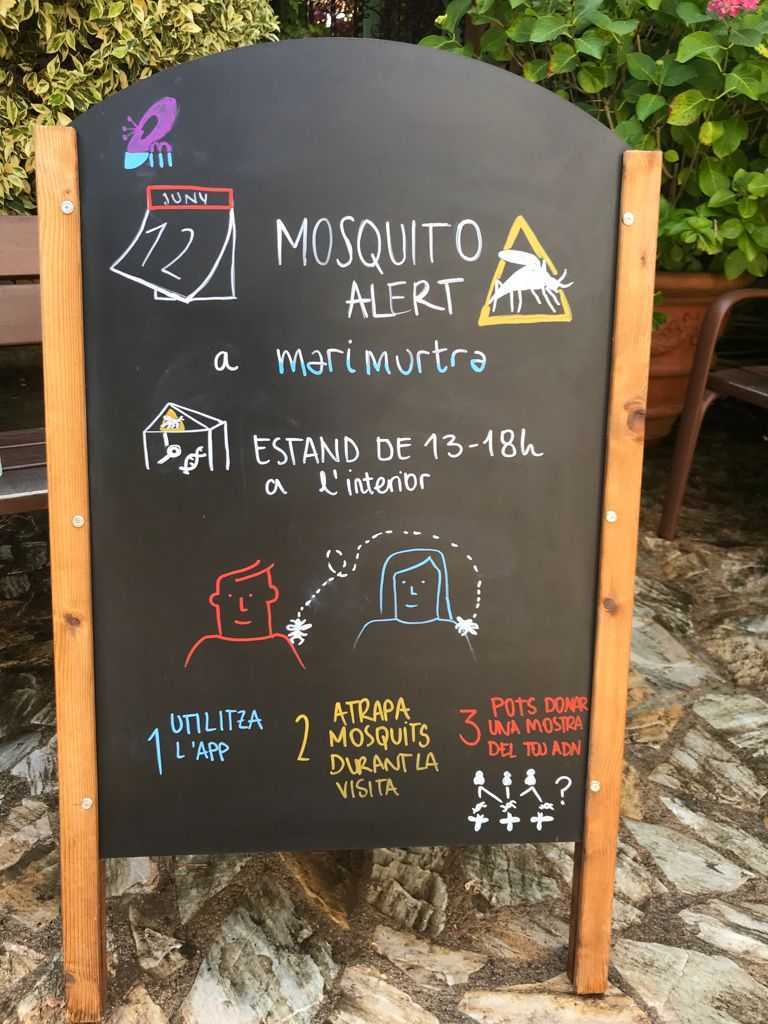 m
JUNY
12
MOSQUITO
ALERT
a marimurtra
ESTAND DE 13-18h
a l'interior
1 UTILITZA
L'APP
2 ATRAPA
MOSQUITS
DURANT LA
VISITA
3 POTS DONAR
UNA MOSTRA
DEL TOU ADN
?